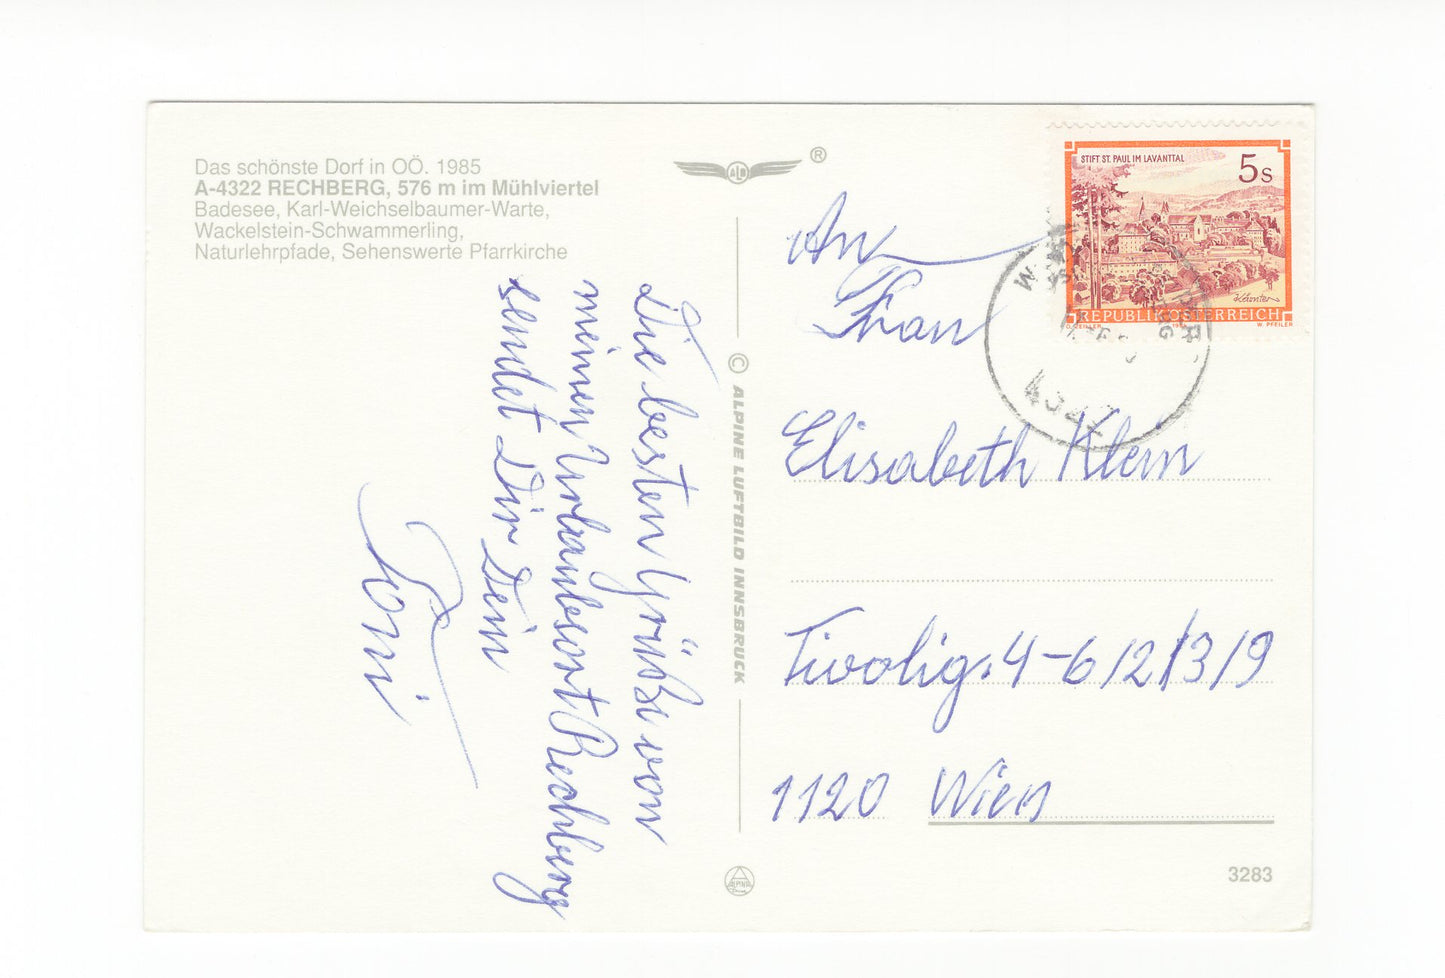 Das schönste Dorf in OÖ. 1985
A-4322 RECHBERG, 576 m im Mühlviertel
Badesee, Karl-Weichselbaumer-Warte,
Wackelstein-Schwammerling,
Naturlehrpfade, Sehenswerte Pfarrkirche
Die besten Grüße von
meinen Urlaubsort Rechberg
sendet Dir Dein
Toni
ALB
®
© ALPINE LUFTBILD INNSBRUCK
STIFT ST. PAUL IM LAVANTTAL
5s
Kärnten
REPUBLIK ÖSTERREICH
W. PFEILER
4322
An
Frau
Elisabeth Klein
Tivolig. 4-6/2/3/9
1120 Wien
3283